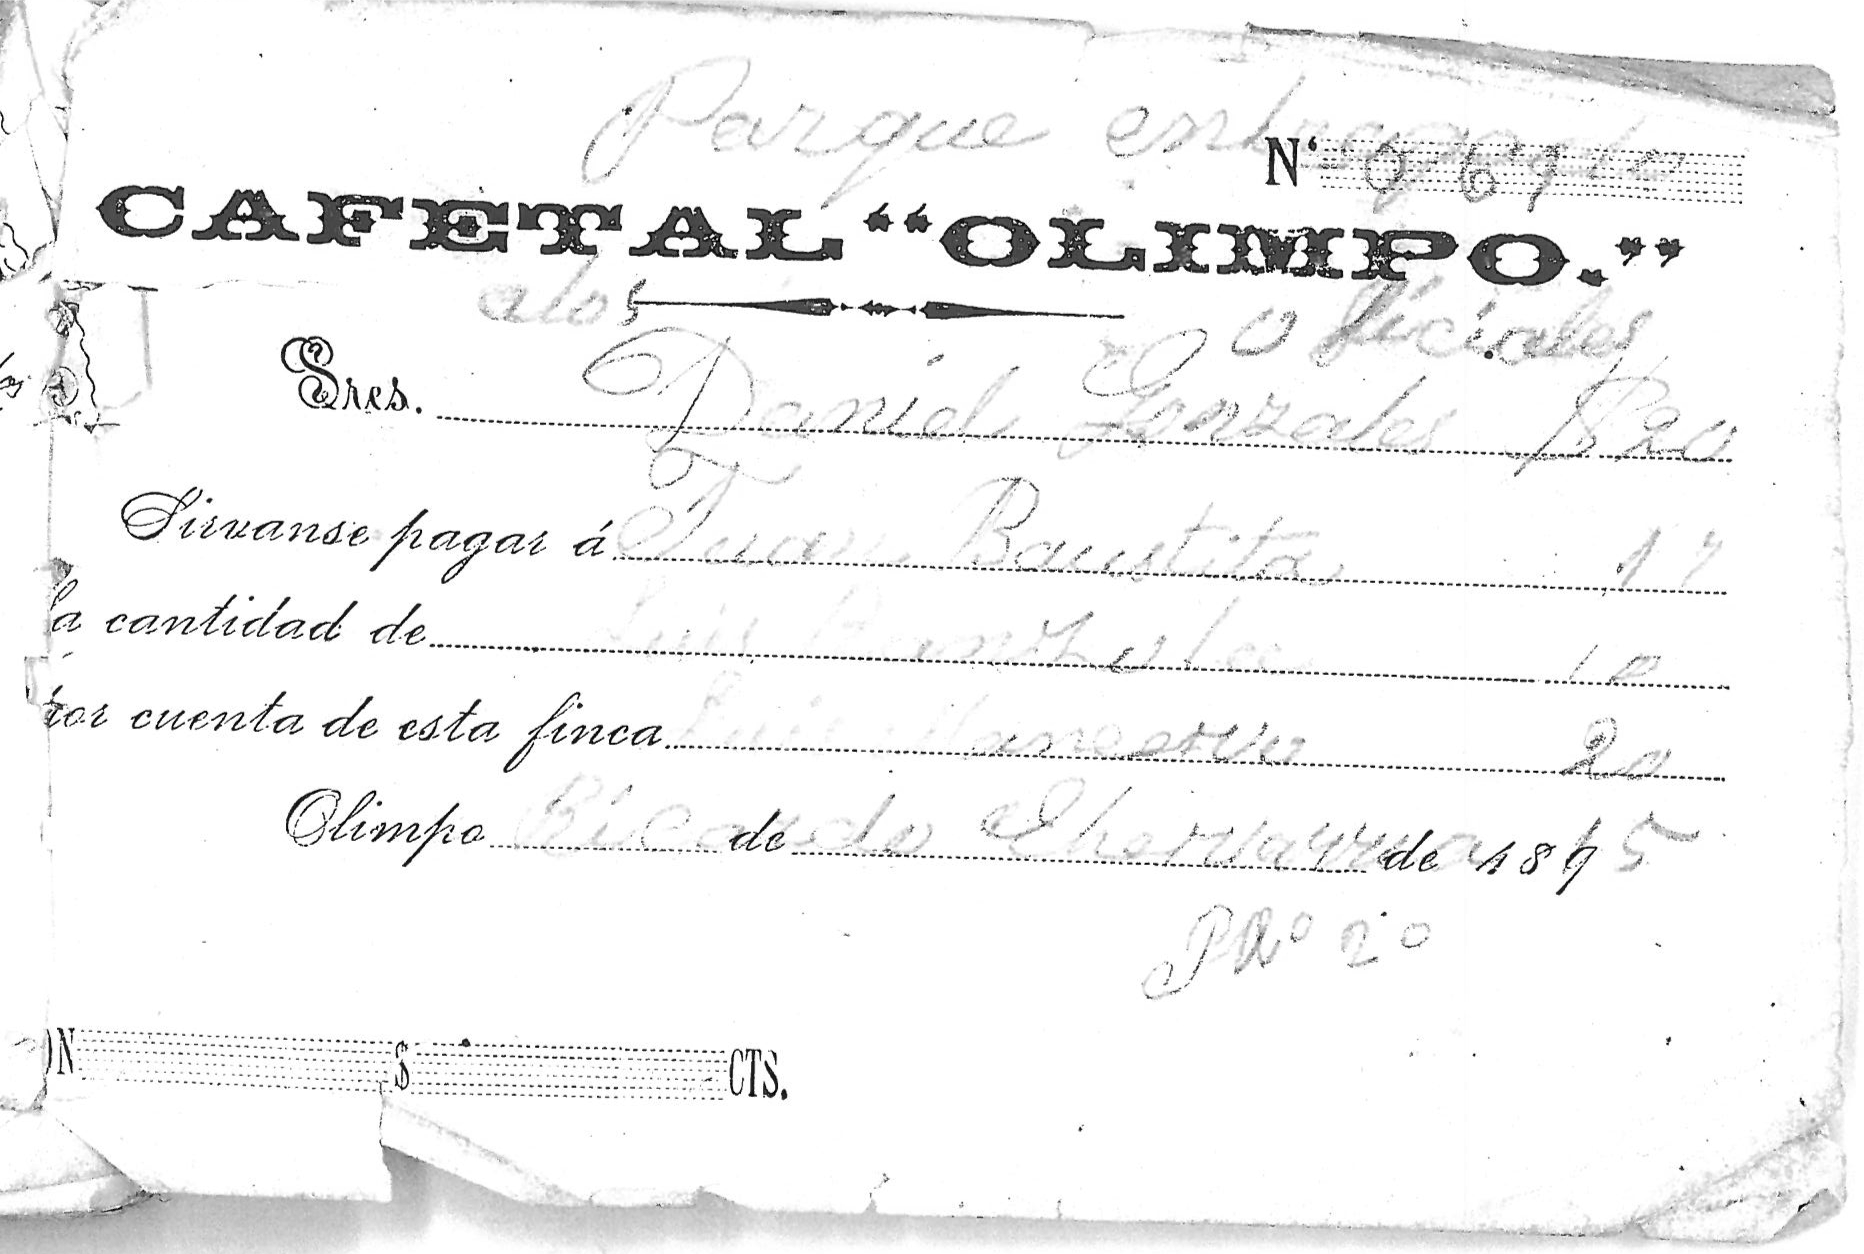 Parque entregado
Nº 9691
CAFETAL “OLIMPO.”
a los Oficiales
Sres. Daniel Gonzales $20
Sirvanse pagar á Juan Bautista 17
la cantidad de Luis 10
por cuenta de esta finca Luis 20
Olimpo Ricardo de de 1895
20
ON $ CTS.